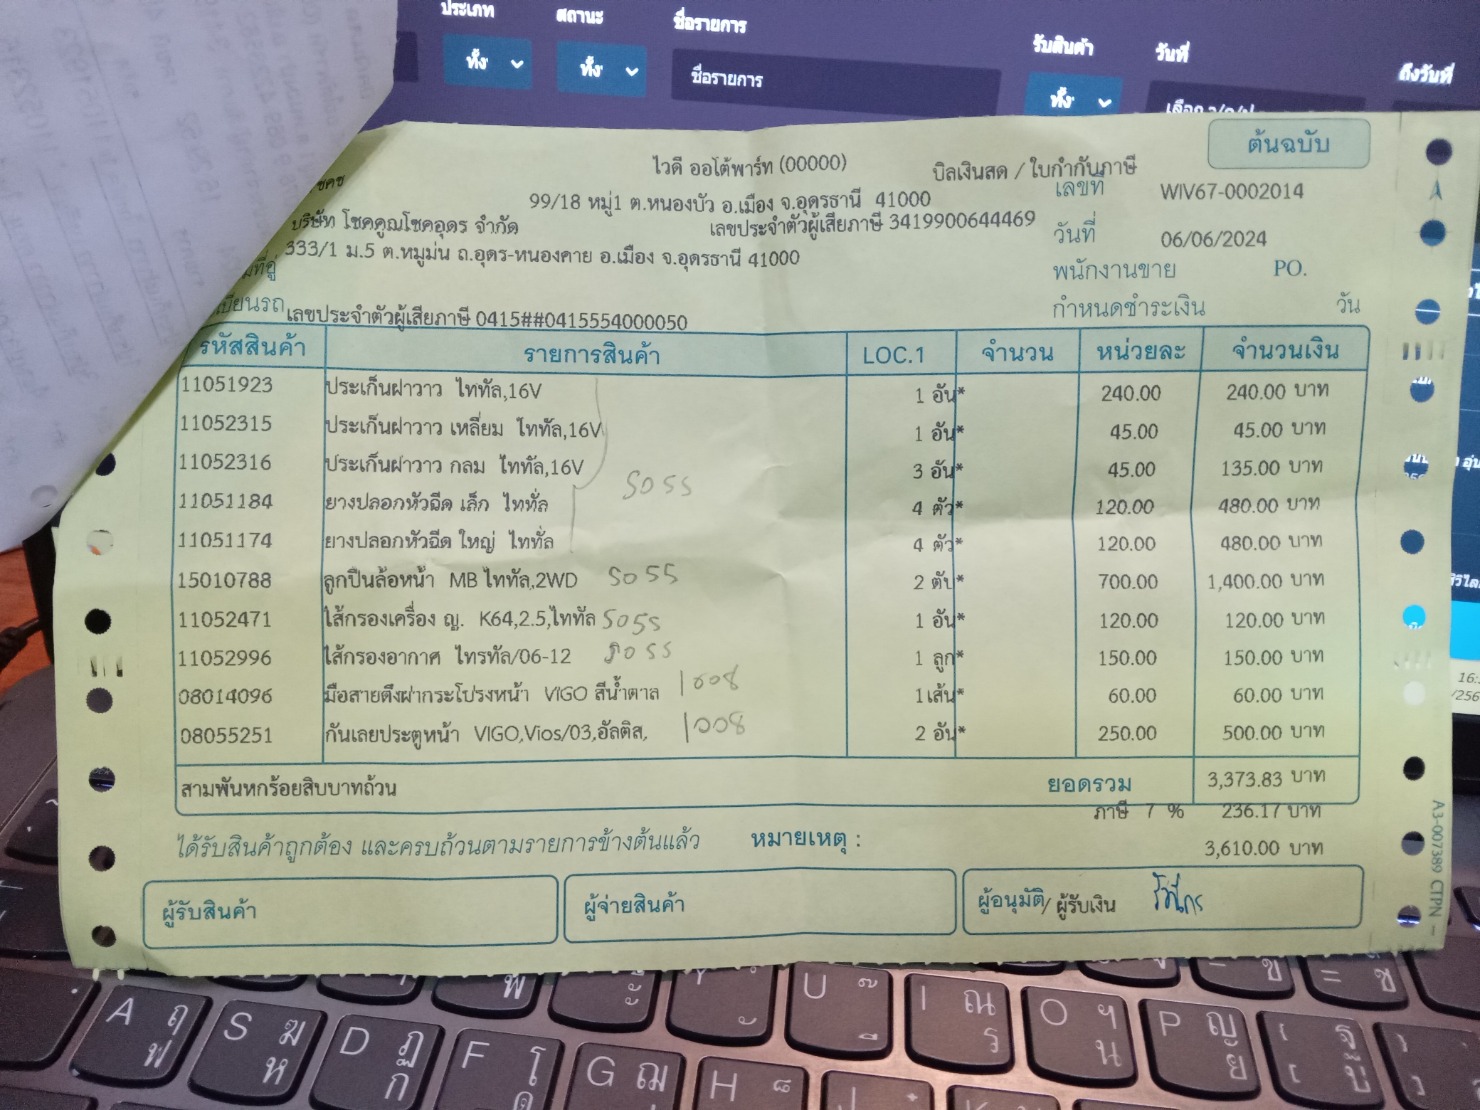 ประเภท สถานะ ชื่อรายการ รับสินค้า วันที่ ถึงวันที่
ทั้ง ทั้ง ชื่อรายการ ทั้ง
ต้นฉบับ
ไวดี ออโต้พาร์ท (00000) บิลเงินสด / ใบกำกับภาษี
99/18 หมู่1 ต.หนองบัว อ.เมือง จ.อุดรธานี 41000 เลขที่ WIV67-0002014
บริษัท โชคคูณโชคอุดร จำกัด เลขประจำตัวผู้เสียภาษี 3419900644469
333/1 ม.5 ต.หมูม่น ถ.อุดร-หนองคาย อ.เมือง จ.อุดรธานี 41000 วันที่ 06/06/2024
พนักงานขาย PO.
เลขประจำตัวผู้เสียภาษี 0415##0415554000050 กำหนดชำระเงิน วัน
รหัสสินค้า รายการสินค้า LOC.1 จำนวน หน่วยละ จำนวนเงิน
11051923 ประเก็นฝาวาว ไททัล,16V 1 อัน* 240.00 240.00 บาท
11052315 ประเก็นฝาวาว เหลี่ยม ไททัล,16V 1 อัน* 45.00 45.00 บาท
11052316 ประเก็นฝาวาว กลม ไททัล,16V 3 อัน* 45.00 135.00 บาท
5055
11051184 ยางปลอกหัวฉีด เล็ก ไททั่ล 4 ตัว* 120.00 480.00 บาท
11051174 ยางปลอกหัวฉีด ใหญ่ ไททั่ล 4 ตัว* 120.00 480.00 บาท
15010788 ลูกปืนล้อหน้า MB ไททัล,2WD 5055 2 ตับ* 700.00 1,400.00 บาท
11052471 ไส้กรองเครื่อง ญ. K64,2.5,ไททัล 5055 1 อัน* 120.00 120.00 บาท
11052996 ไส้กรองอากาศ ไทรทัล/06-12 5055 1 ลูก* 150.00 150.00 บาท
08014096 มือสายดึงฝากระโปรงหน้า VIGO สีน้ำตาล 1008 1เส้น* 60.00 60.00 บาท
08055251 กันเลยประตูหน้า VIGO,Vios/03,อัลติส, 1008 2 อัน* 250.00 500.00 บาท
สามพันหกร้อยสิบบาทถ้วน ยอดรวม 3,373.83 บาท
ภาษี 7 % 236.17 บาท
ได้รับสินค้าถูกต้อง และครบถ้วนตามรายการข้างต้นแล้ว หมายเหตุ : 3,610.00 บาท
ผู้รับสินค้า ผู้จ่ายสินค้า ผู้อนุมัติ/ ผู้รับเงิน
A3-007389 CTPN
U I ณ ร O ฯ น P ญ ย
A ฤ ฟ S ฆ ห D ฏ ก F โ ด G ฌ H